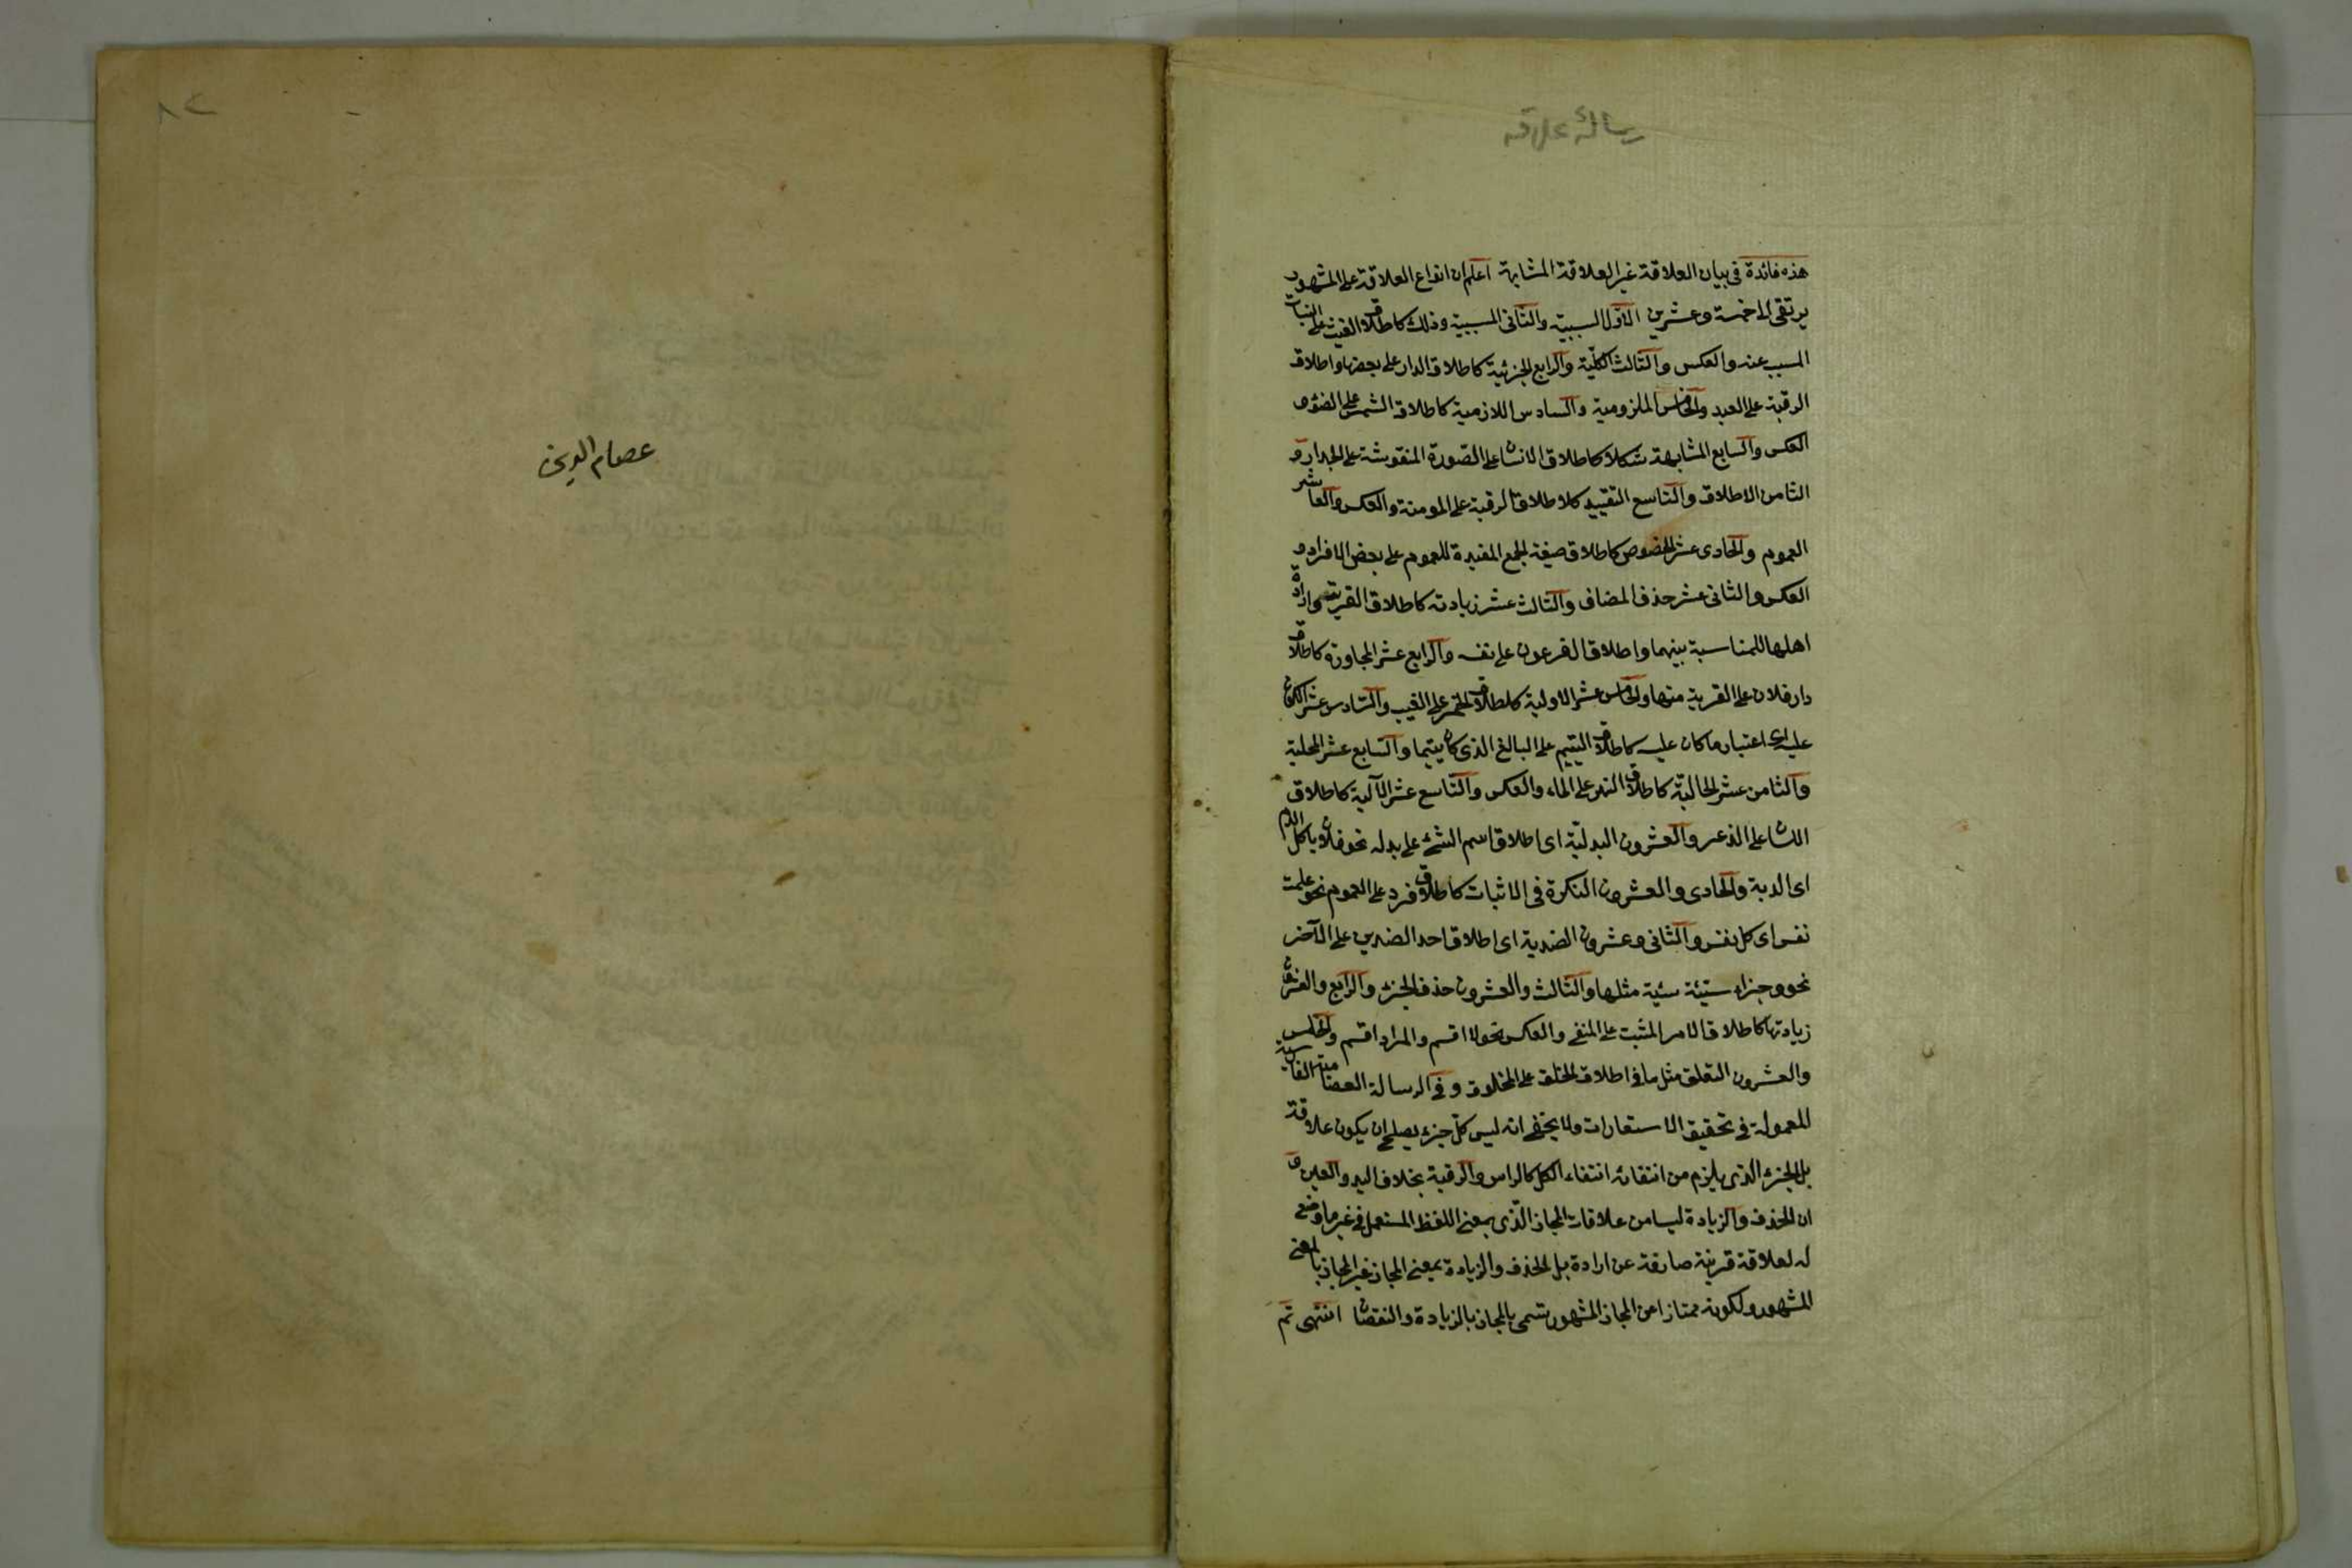 رسالهٔ علاقه
هذه فائدة فى بيان العلاقة غير العلاقة المشابهة اعلم ان انواع العلاقة على المشهور
يرتقى الى خمسة وعشرين الاول السببية والثانى المسببية وذلك كاطلاق الغيث على النبات
المسبب عنه والعكس والثالث الكلية والرابع الجزئية كاطلاق الدار على بعضها واطلاق
الرقبة على العبد والخامس الملزومية والسادس اللازمية كاطلاق الشمس على الضوء و
العكس والسابع المشابهة شكلا كاطلاق الانسان على الصورة المنقوشة على الجدار و
الثامن الاطلاق والتاسع التقييد كلاطلاق الرقبة على المومنة والعكس والعاشر
العموم والحادى عشر الخصوص كاطلاق صيغة الجمع المفيدة للعموم على بعض الافراد و
العكس والثانى عشر حذف المضاف والثالث عشر زيادته كاطلاق القرية وارادة
اهلها للمناسبة بينهما واطلاق الفرعون على نفسه والرابع عشر المجاورة كاطلاق
دار فلان على القريبة منها والخامس عشر الاولية كاطلاق الخمر على العنب والسادس عشر الكون
عليه اى اعتبار ما كان عليه كاطلاق اليتيم على البالغ الذى كان يتيما والسابع عشر المحلية
والثامن عشر الحالية كاطلاق النهر على الماء والعكس والتاسع عشر الآلية كاطلاق
اللسان على الذكر والعشرون البدلية اى اطلاق اسم الشئ على بدله نحو فلان ياكل الدم
اى الدية والحادى والعشرون النكرة فى الاثبات كاطلاق فرد على العموم نحو علمت
نفس اى كل نفس والثانى وعشرون الضدية اى اطلاق احد الضدين على الآخر
نحو وجزاء سيئة سيئة مثلها والثالث والعشرون حذف الجزء والرابع والعشرون
زيادتها كاطلاق الامر المثبت على المنفى والعكس نحو لا اقسم والمراد اقسم والخامس
والعشرون التعلق مثل ما فى اطلاق الخلق على المخلوق وفى الرسالة العصامية الفارسية
المعمولة فى تحقيق الاستعارات ولا يخفى انه ليس كل جزء يصلح ان يكون علاقة
بل الجزء الذى يلزم من انتفائه انتفاء الكل كالراس والرقبة بخلاف اليد والعين و
ان الحذف والزيادة ليسا من علاقات المجاز الذى بمعنى اللفظ المستعمل فى غير ما وضع
له لعلاقة قرينة صارفة عن ارادة بل الحذف والزيادة بمعنى المجاز غير المجاز بالمعنى
المشهور ولكونه ممتازا عن المجاز المشهور تسمى بالمجاز بالزيادة والنقصان انتهى تم
عصام الدين
٨٢